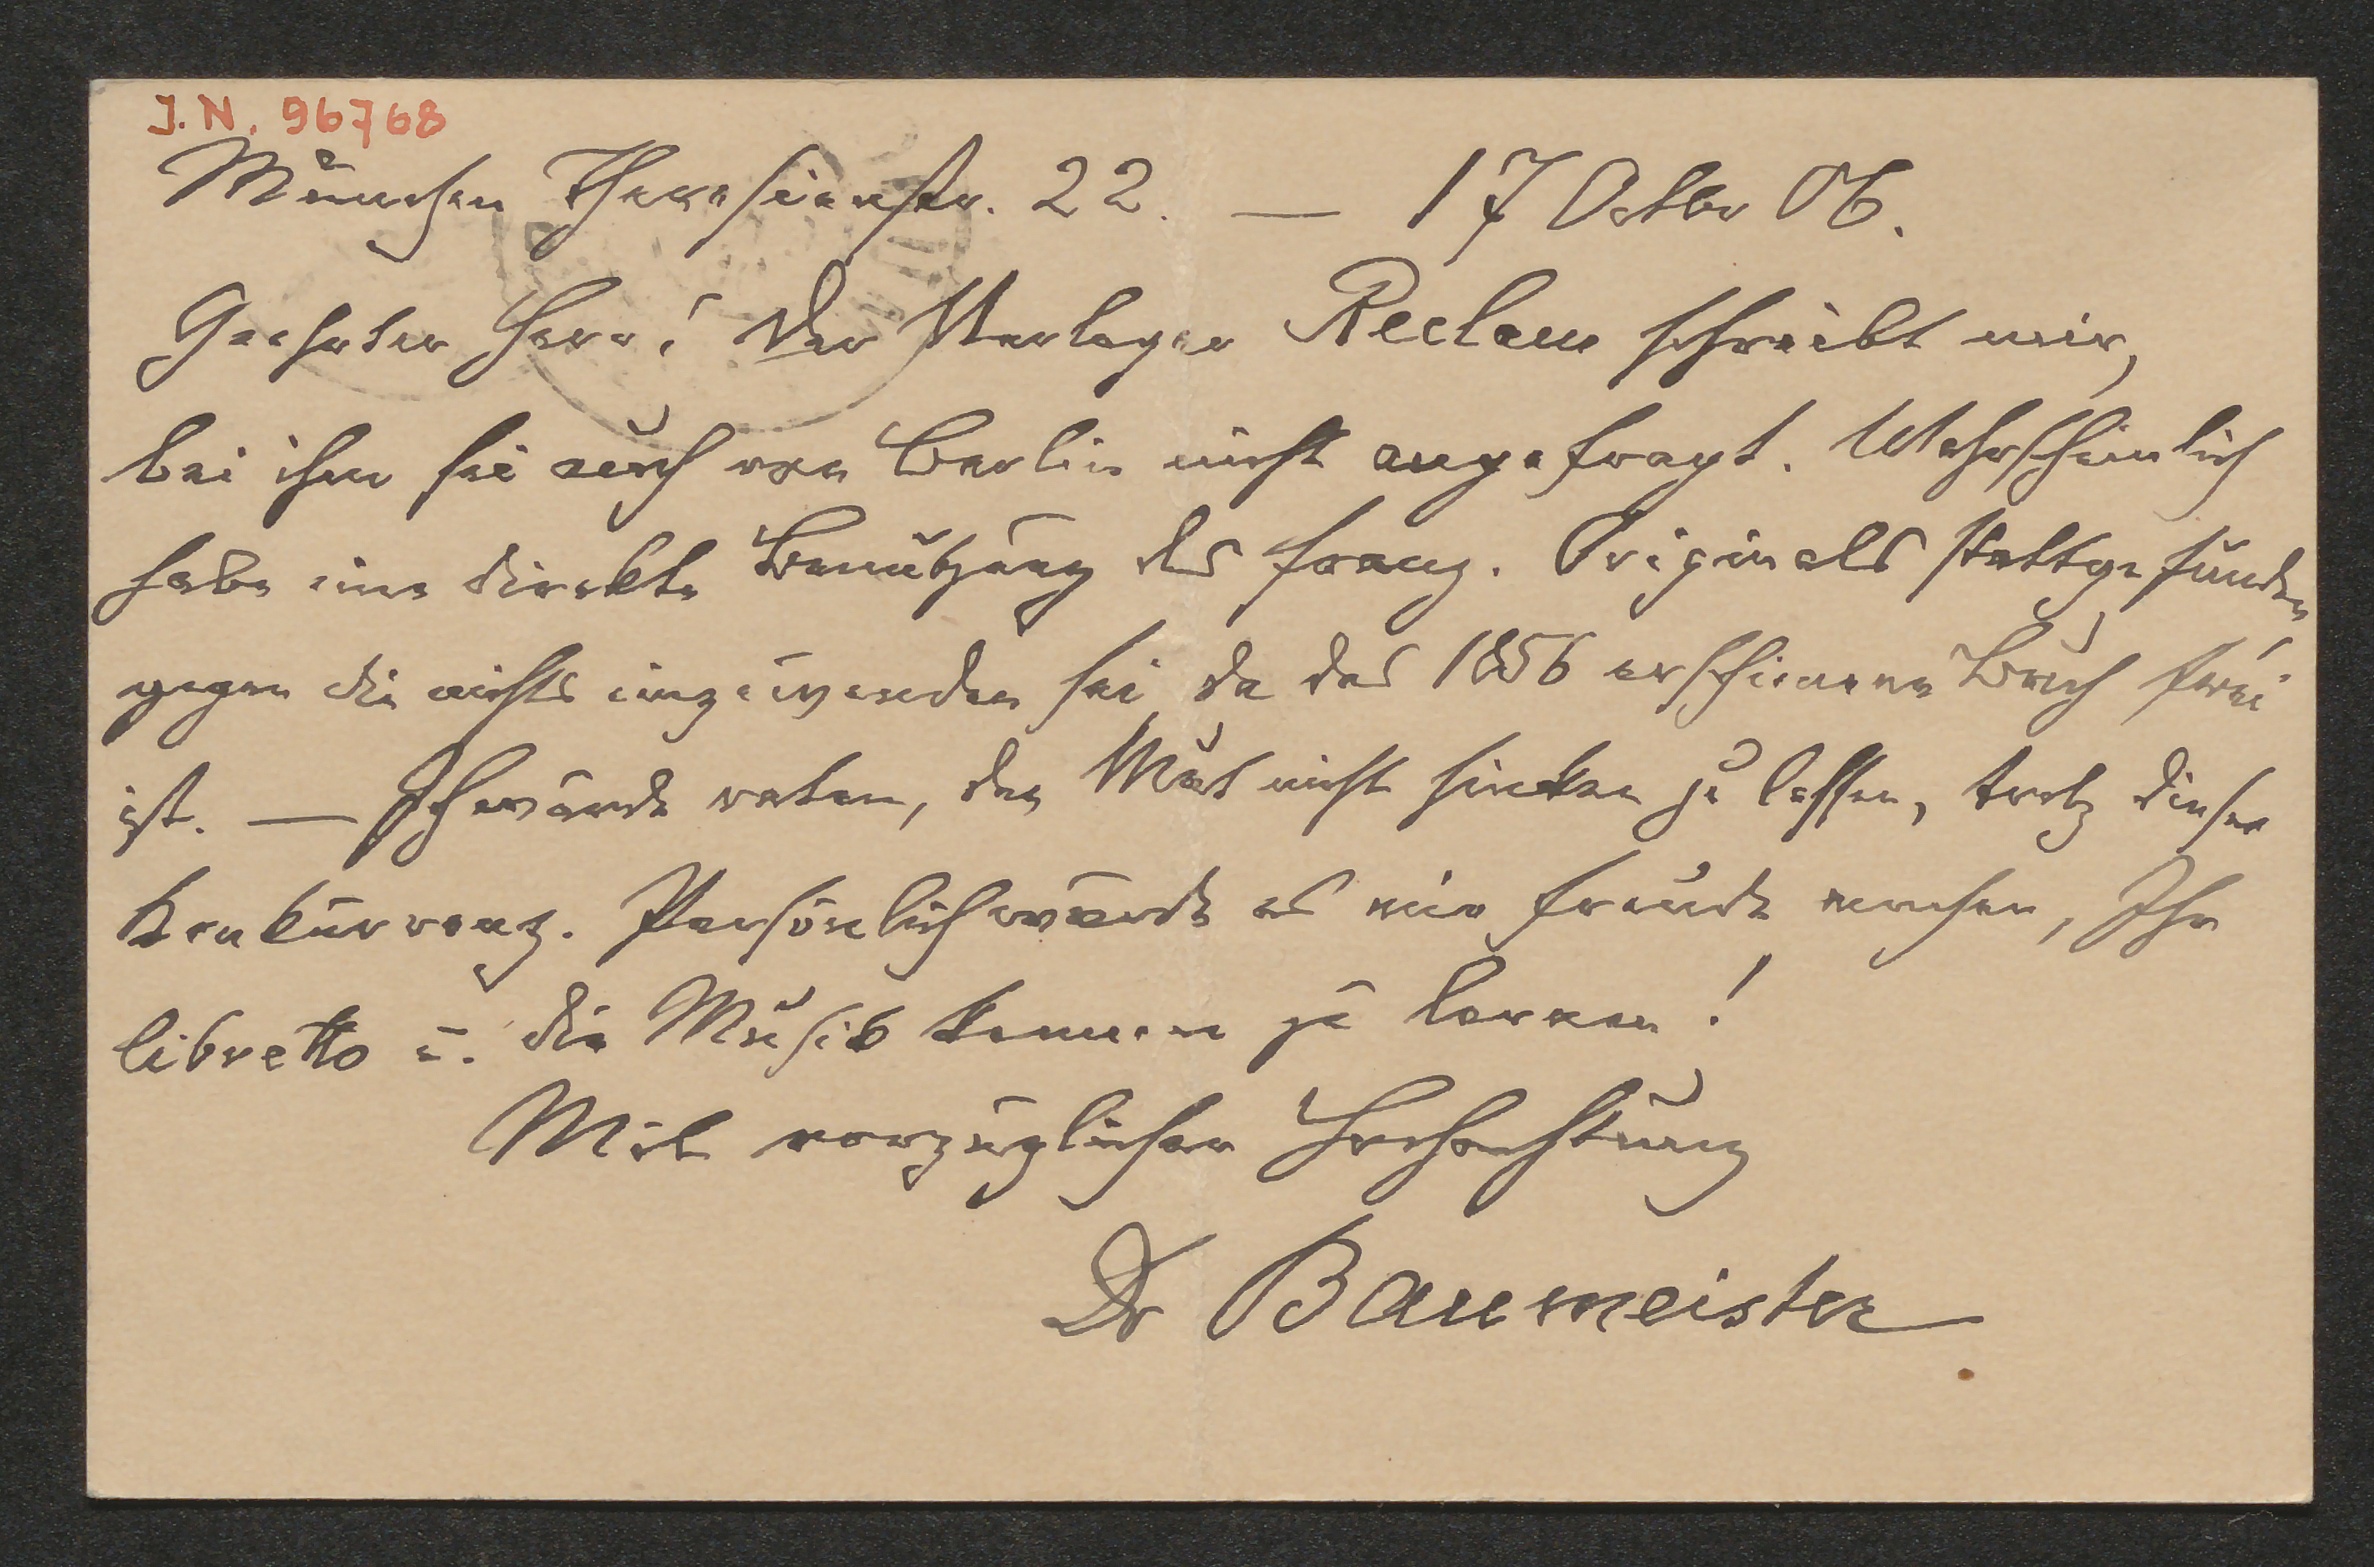 J. N. 96768
München Theresienstr. 22. — 17 Octbr 06.
Geehrter Herr! Der Verleger Reclam schreibt mir,
bei ihm sei auch von Berlin nicht angefragt. Wahrscheinlich
habe eine direkte Benützung des franz. Originals stattgefunden
gegen die nichts einzuwenden sei, da das 1856 erschienene Buch frei
ist. — Ich würde raten, den Mut nicht sinken zu lassen, trotz dieser
Konkurrenz. Persönlich würde es mir Freude machen, Ihr
libretto u. die Musik kennen zu lernen!
Mit vorzüglicher Hochachtung
Dr Baumeister